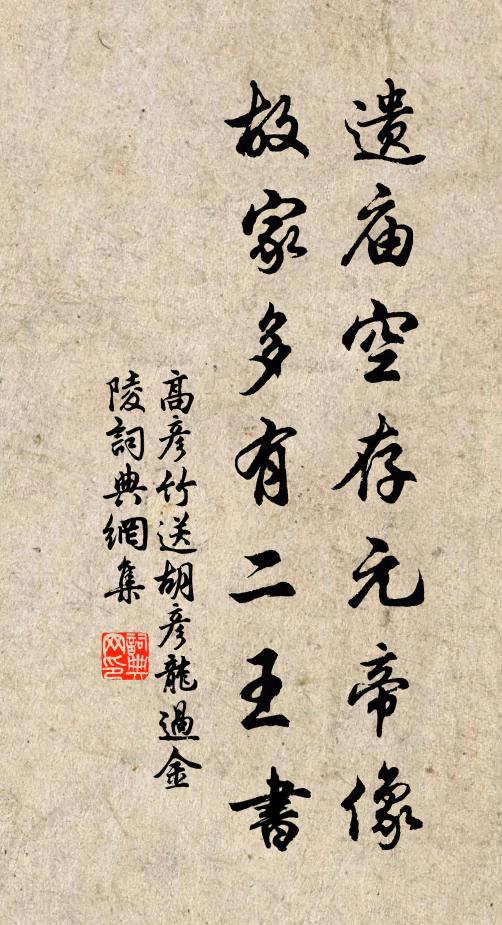 遗庙空存元帝像
故家多有二王書
高彦竹送胡彦龍過金
陵詞典網集
詞典网印